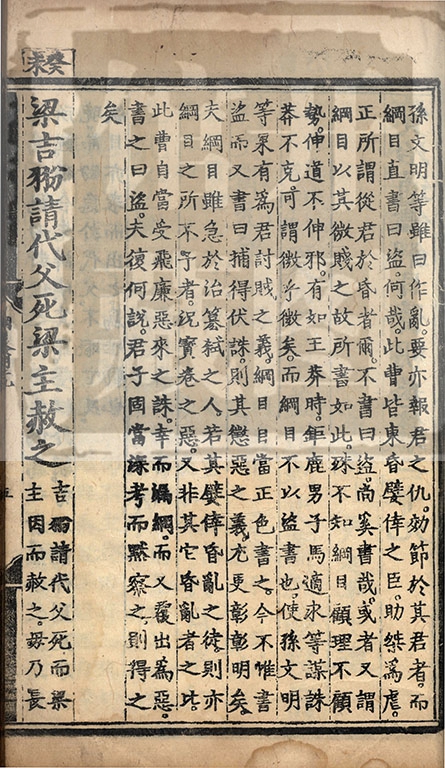 孫文明等雖曰作亂。要亦報君之仇。効節於其君者。而
綱目直書曰盜。何哉。此曹皆東昏嬖倖之臣。助桀爲虐。
正所謂從君於昏者爾。不書曰盜。尚奚書哉。或者又謂
綱目以其微賤之故。所書如此。殊不知綱目顧理不顧
勢。伸道不伸邪。有如王莽時。鉅鹿男子馬適求等謀誅
莽不克。可謂微乎微矣。而綱目不以盜書也。使孫文明
等果有爲君討賊之義。綱目自當正色書之。今不惟書
盜。而又書曰捕得伏誅。則其懲惡之義。尤更彰彰明矣。
夫綱目雖急於治簒弒之人。若其嬖倖昏亂之徒。則亦
綱目之所不予者。況寳卷之惡。又非其它昏亂者之比。
此曹自當受飛廉惡來之誅。幸而漏網。而又發出爲惡。
書之曰盜。夫復何說。君子固當深考而默察之。則得之
矣
梁吉翂請代父死梁主赦之
吉翂請代父死而梁
主因而赦之。毋乃長
癸未